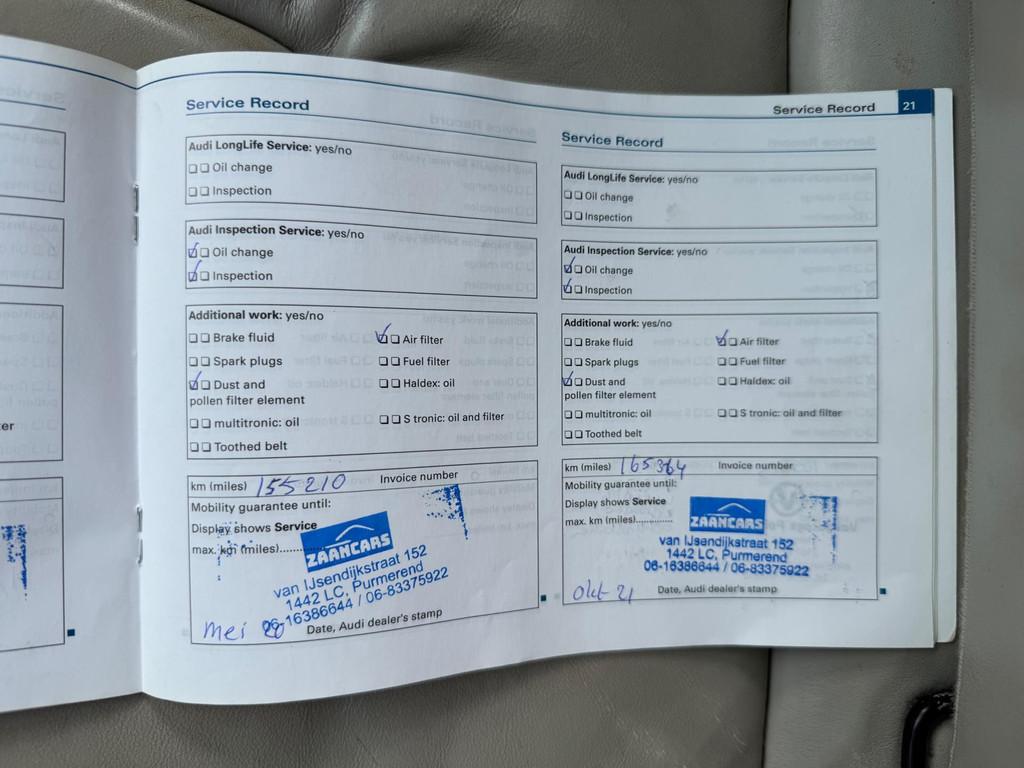 Service Record
Audi LongLife Service: yes/no
Oil change
Inspection
Audi Inspection Service: yes/no
Oil change
Inspection
Additional work: yes/no
Brake fluid
Air filter
Spark plugs
Fuel filter
Dust and
pollen filter element
Haldex: oil
multitronic: oil
S tronic: oil and filter
Toothed belt
km (miles) 155210 Invoice number
Mobility guarantee until:
Display shows Service
max. km (miles)..........
ZAANCARS
van IJsendijkstraat 152
1442 LC, Purmerend
06-16386644 / 06-83375922
mei 20
Date, Audi dealer's stamp
Service Record 21
Service Record
Audi LongLife Service: yes/no
Oil change
Inspection
Audi Inspection Service: yes/no
Oil change
Inspection
Additional work: yes/no
Brake fluid
Air filter
Spark plugs
Fuel filter
Dust and
pollen filter element
Haldex: oil
multitronic: oil
S tronic: oil and filter
Toothed belt
km (miles) 165364 Invoice number
Mobility guarantee until:
Display shows Service
max. km (miles)..........
ZAANCARS
van IJsendijkstraat 152
1442 LC, Purmerend
06-16386644 / 06-83375922
okt 21
Date, Audi dealer's stamp
er